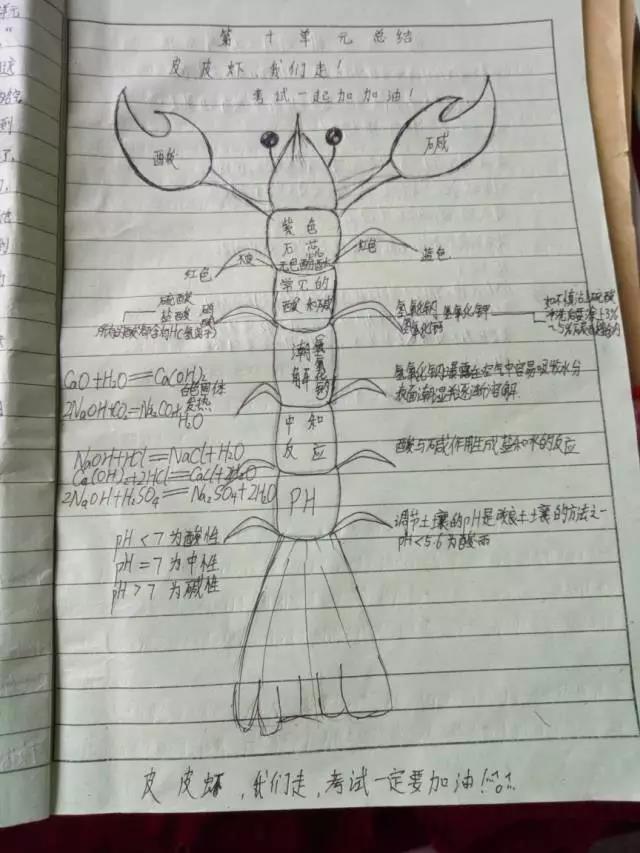 第十单元总结
皮皮虾,我们走!
考试一起加加油!
酸
碱
紫色
石蕊
无色酚酞
红色
蓝色
红色
常见的
酸和碱
硫酸
盐酸
氢氧化钠
氢氧化钙
氢氧化钾
潮解
氢氧化钠
CaO+H₂O══Ca(OH)₂
白色固体
发热
2NaOH+CO₂══Na₂CO₃+
H₂O
氢氧化钠暴露在空气中容易吸收水分
表面潮湿并逐渐溶解.
中和
反应
NaOH+HCl══NaCl+H₂O
Ca(OH)₂+2HCl══CaCl₂+2H₂O
2NaOH+H₂SO₄══Na₂SO₄+2H₂O
酸与碱作用生成盐和水的反应
PH
pH<7为酸性
pH=7为中性
pH>7为碱性
调节土壤的pH是改良土壤的方法之一
pH<5.6为酸雨
皮皮虾,我们走,考试一定要加油!